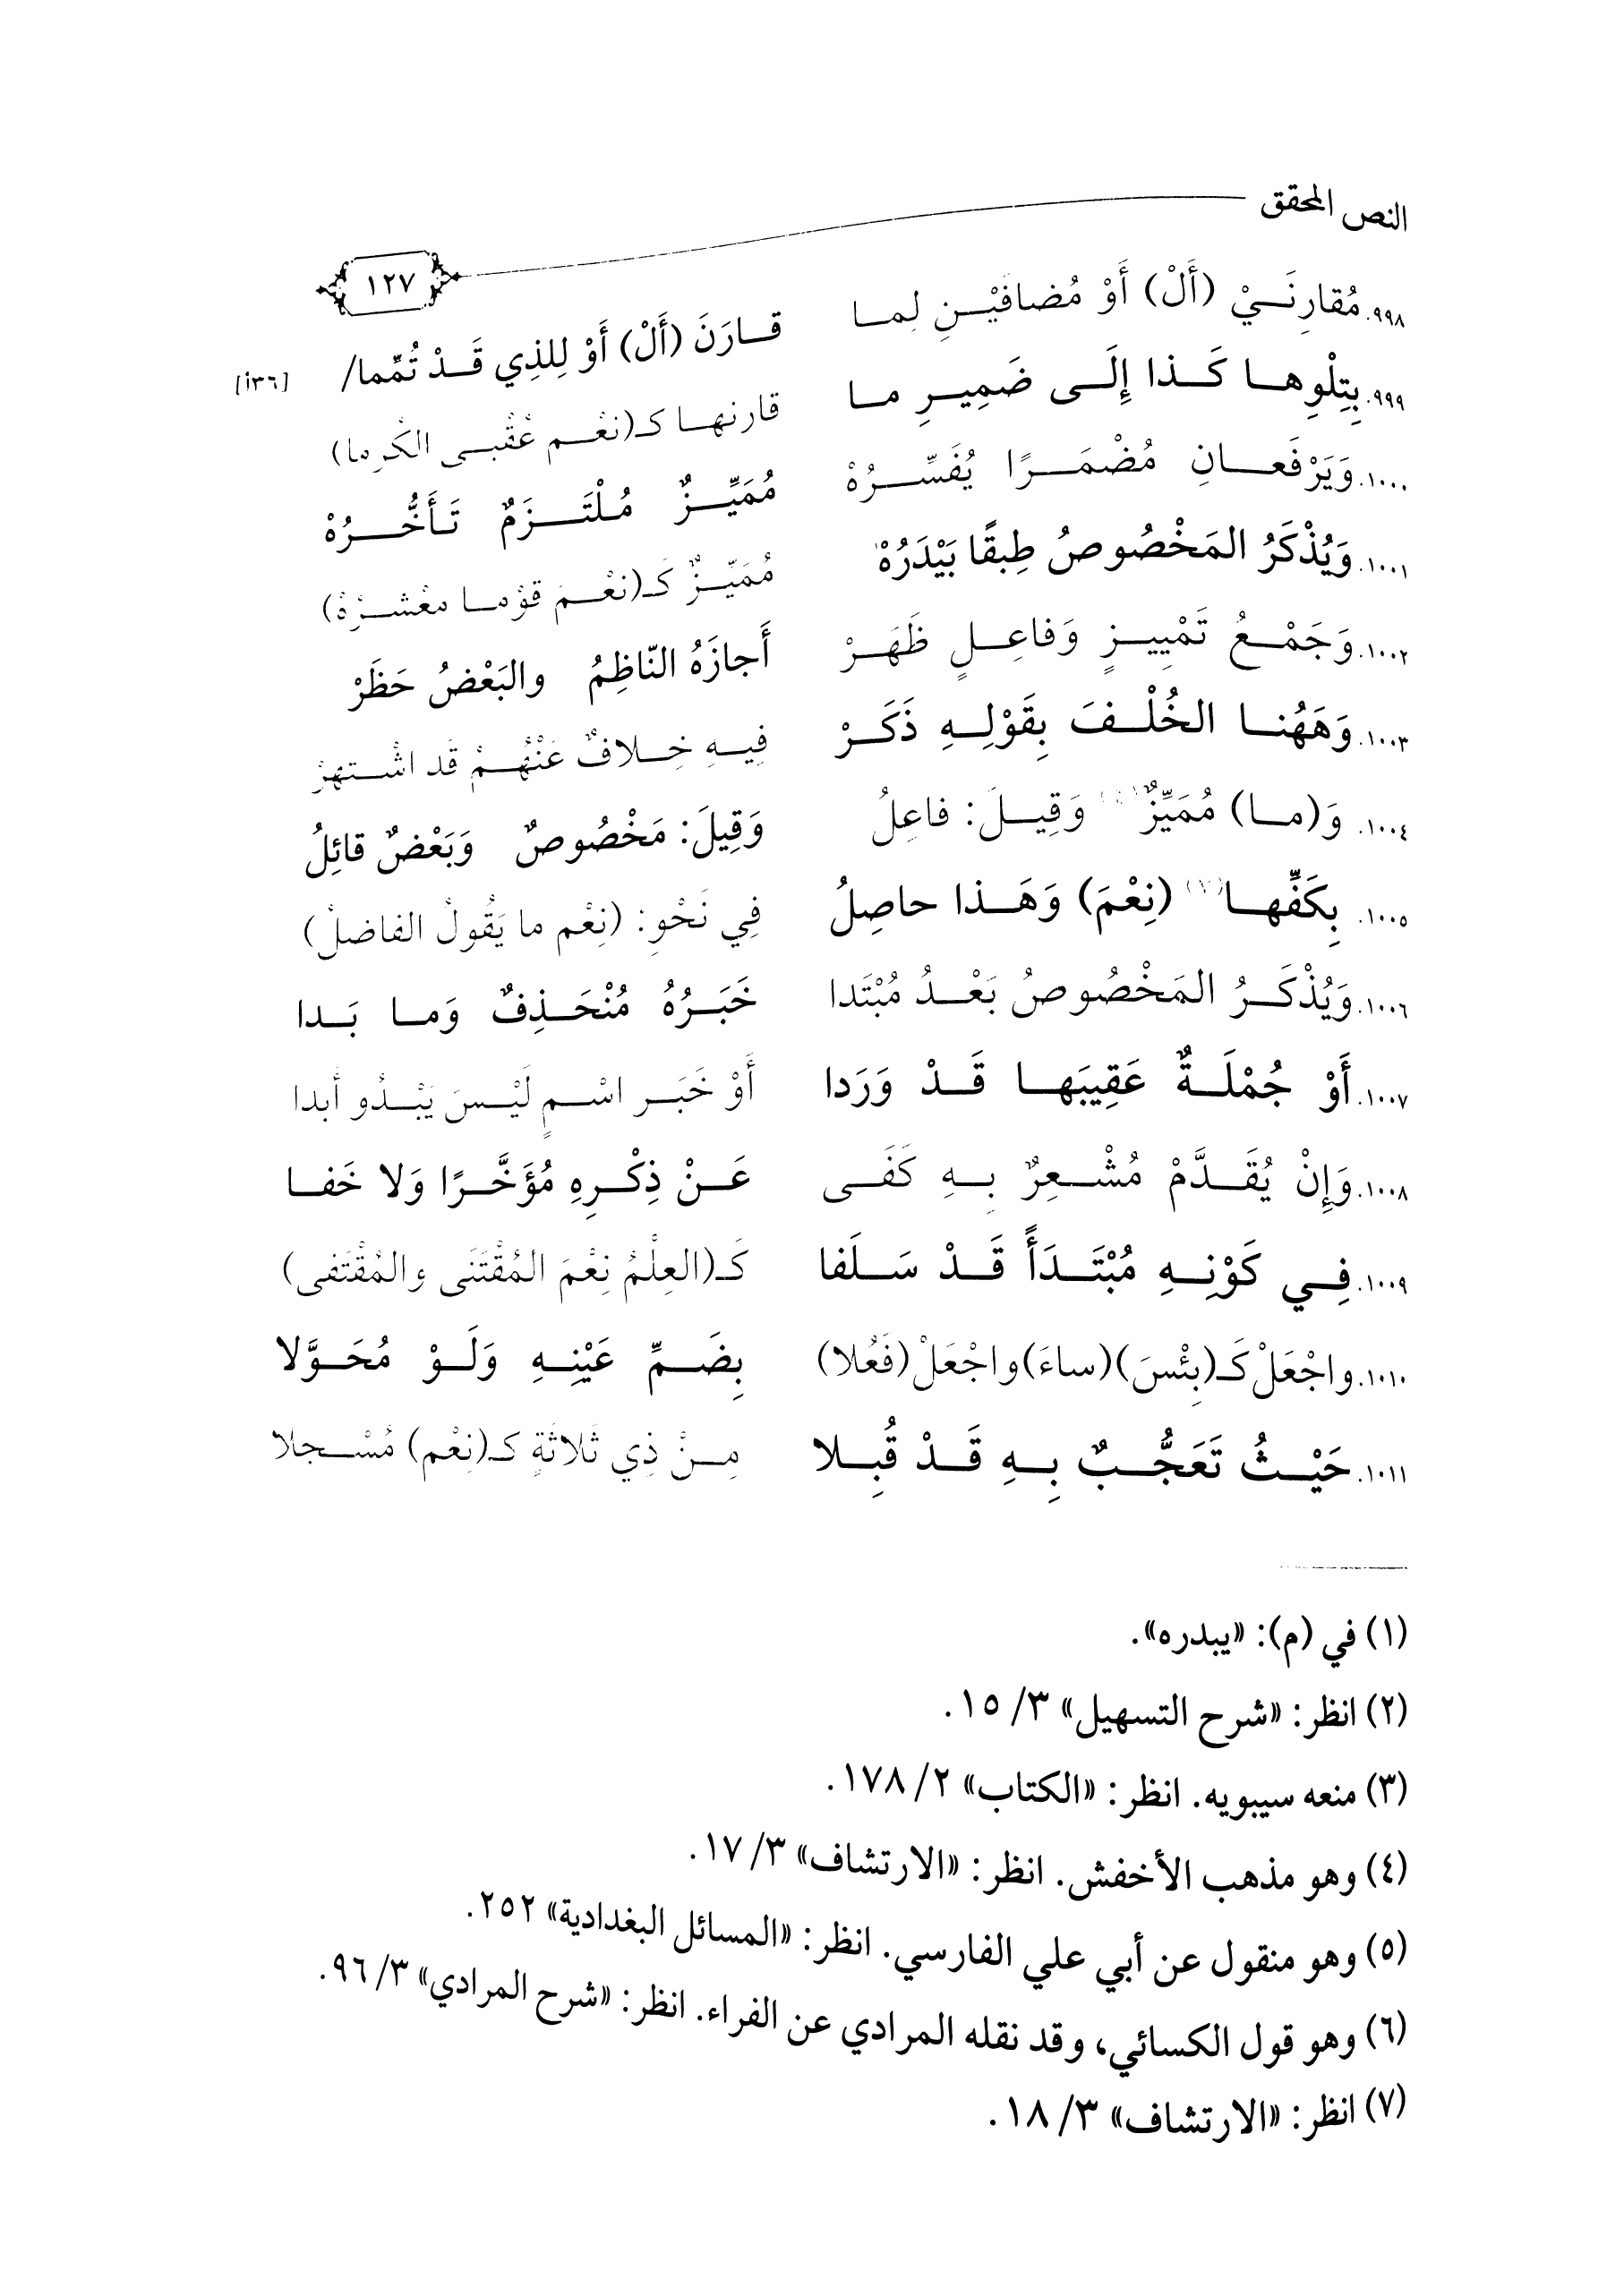 النص المحقق
١٢٧
٩٩٨. مُقارِنَيْ (أَلْ) أَوْ مُضافَيْنِ لِما قارَنَ (أَلْ) أَوْ لِلذِي قَدْ تُمِّما/ [١٣٦أ]
٩٩٩. بِتِلْوِها كَذا إِلَى ضَمِيرِ ما قارنها كـ(نِعْم عُقْبى الكُرِما)
١٠٠٠. وَيَرْفَعانِ مُضْمَرًا يُفَسِّرُهْ مُمَيِّزٌ مُلْتَزَمٌ تَأَخُّرُهْ
١٠٠١. وَيُذْكَرُ المَخْصُوصُ طِبقًا بَيْدَرُهْ مُمَيِّزٌ كَـ(نِعْمَ قوْما معْشرُهْ)
١٠٠٢. وَجَمْعُ تَمْيِيزٍ وَفاعِلٍ ظَهَرْ أَجازَهُ النّاظِمُ والبَعْضُ حَظَرْ
١٠٠٣. وَهَهُنا الخُلْفَ بِقَوْلِهِ ذَكَرْ فِيهِ خِلافٌ عَنْهُمْ قَد اشْتهرْ
١٠٠٤. وَ(ما) مُمَيِّزٌ وَقِيلَ: فاعِلُ وَقِيلَ: مَخْصُوصٌ وَبَعْضٌ قائِلُ
١٠٠٥. بِكَفِّها(٧) (نِعْمَ) وَهَذا حاصِلُ فِي نَحْوِ: (نِعْم ما يَقُولُ الفاضلُ)
١٠٠٦. وَيُذْكَرُ المَخْصُوصُ بَعْدُ مُبْتَدا خَبَرُهُ مُنْحَذِفٌ وَما بَدا
١٠٠٧. أَوْ جُمْلَةٌ عَقِيبَها قَدْ وَرَدا أَوْ خَبَر اسْمٍ لَيْسَ يَبْدُو أبدا
١٠٠٨. وَإِنْ يُقَدَّمْ مُشْعِرٌ بِهِ كَفَى عَنْ ذِكْرِهِ مُؤَخَّرًا وَلا خَفا
١٠٠٩. فِي كَوْنِهِ مُبْتَدَأً قَدْ سَلَفا كَـ(العِلْمُ نِعْمَ المُقْتَنَى والمُقْتَفى)
١٠١٠. واجْعَلْ كَـ(بِئْسَ) (ساءَ) واجْعَلْ (فَعُلا) بِضَمِّ عَيْنِهِ وَلَوْ مُحَوَّلا
١٠١١. حَيْثُ تَعَجُّبٌ بِهِ قَدْ قُبِلا مِنْ ذِي ثَلاثَةٍ كـ(نِعْم) مُسْجلا
(١) في (م): «يبدره».
(٢) انظر: «شرح التسهيل» ٣/ ١٥.
(٣) منعه سيبويه. انظر: «الكتاب» ٢/ ١٧٨.
(٤) وهو مذهب الأخفش. انظر: «الارتشاف» ٣/ ١٧.
(٥) وهو منقول عن أبي علي الفارسي. انظر: «المسائل البغدادية» ٢٥٢.
(٦) وهو قول الكسائي، وقد نقله المرادي عن الفراء. انظر: «شرح المرادي» ٣/ ٩٦.
(٧) انظر: «الارتشاف» ٣/ ١٨.